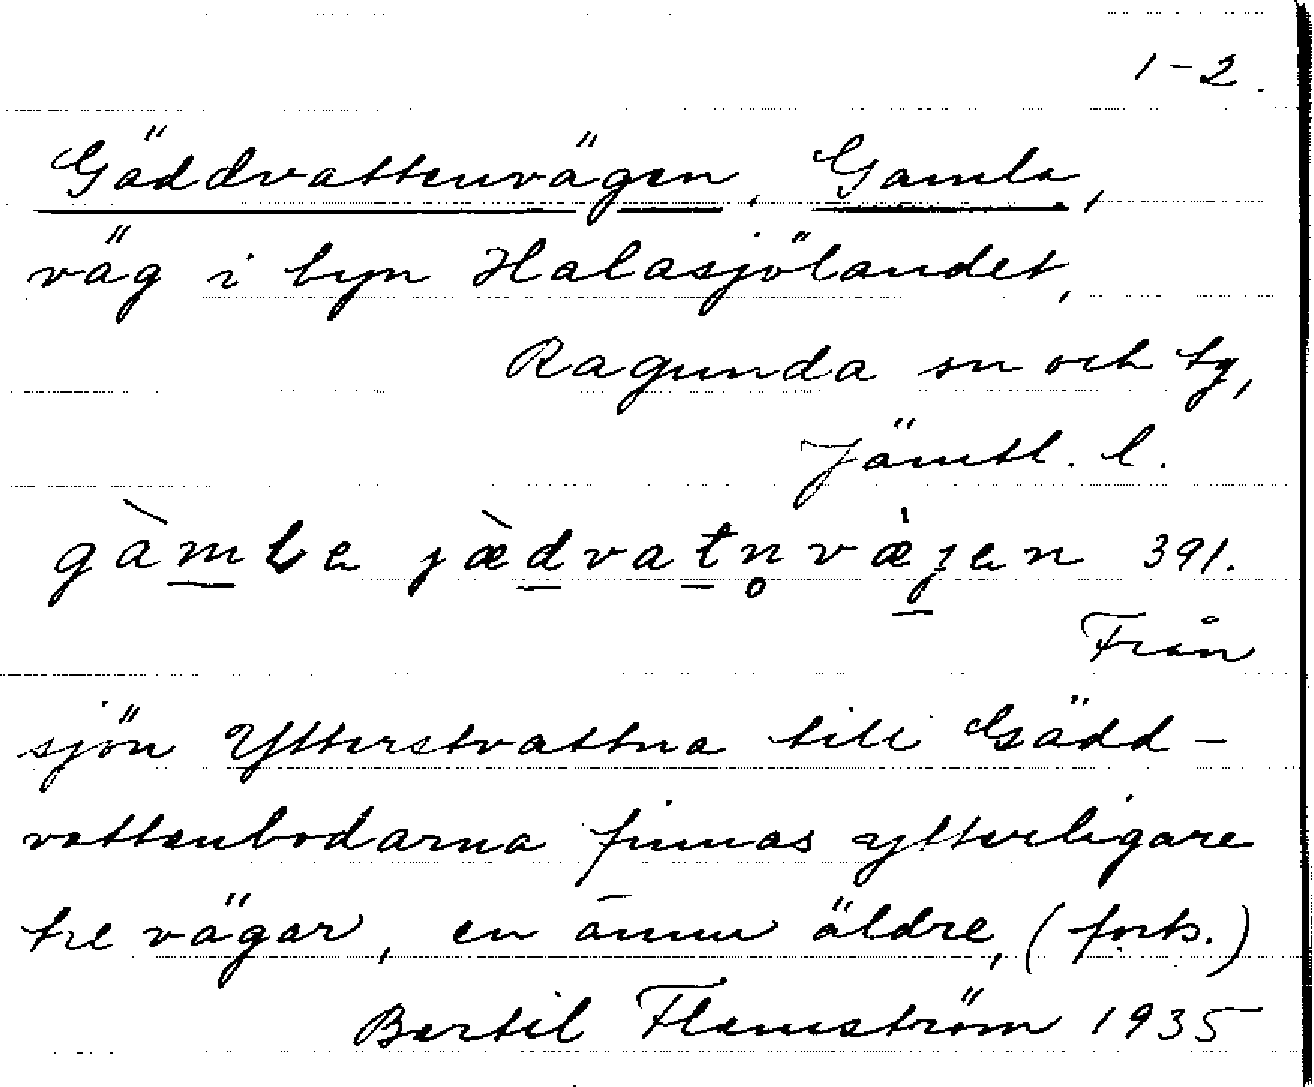 1-2.
Gäddvattenvägen, Gamla,
väg i byn Halasjölandet,
Ragunda sn och tg,
Jämtl. l.
gàmLa jæ̀dvatn̥væ̀jen 391.
Från
sjön Ytterstvattna till Gädd-
vattenbodarna finnas ytterligare
tre vägar, en ännu äldre, (forts.)
Bertil Flemström 1935